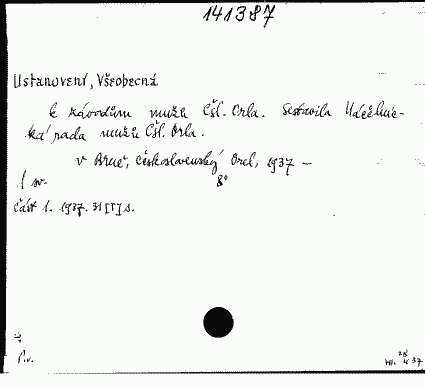 141387
Ustanovení, Všeobecná
k závodům mužů Čsl. Orla. Sestavila Náčelnic-
ká rada mužů Čsl. Orla.
v Brně, Československý Orel, 1937 —
1 sv. 8°
část 1. 1937. 31 [I] s.
P.v.